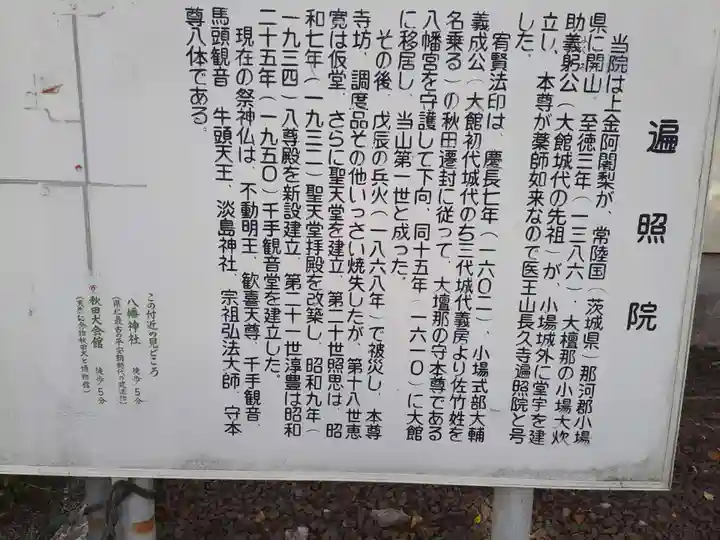 遍照院
当院は上金阿闍梨が、常陸国（茨城県）那河郡小場
県に開山、至徳三年（一三八六）、大檀那の小場大炊
助義躬公（大館城代の先祖）が、小場城外に堂宇を建
立し、本尊が薬師如来なので医王山長久寺遍照院と号
した。
宥賢法印は、慶長七年（一六〇二）、小場式部大輔
義成公（大館初代城代のち三代城代義房より佐竹姓を
名乗る）の秋田遷封に従って、大壇那の守本尊である
八幡宮を守護して下向、同十五年（一六一〇）に大館
に移居し、当山第一世と成った。
その後、戊辰の兵火（一八六八年）で被災し、本尊
寺坊、調度品その他いっさい焼失したが、第十八世恵
寛は仮堂、さらに聖天堂を建立、第二十世照思は、昭
和七年（一九三二）聖天堂拝殿を改築し、昭和九年（
一九三四）八尊殿を新設建立、第二十一世淳豊は昭和
二十五年（一九五〇）千手観音堂を建立した。
現在の祭神仏は、不動明王、歓喜天尊、千手観音、
馬頭観音、牛頭天王、淡島神社、宗祖弘法大師、守本
尊八体である。
この付近の見どころ
八幡神社 徒歩5分
秋田犬会館 徒歩5分